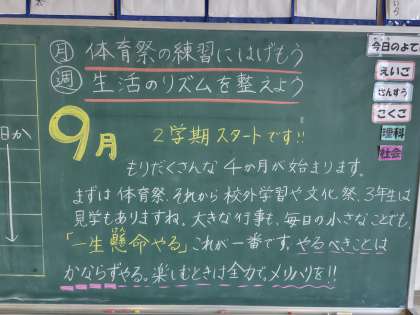 月 体育祭の練習にはげもう
週 生活のリズムを整えよう
9月
2学期スタートです!!
もりだくさんな4か月が始まります。
まずは体育祭、それから校外学習や文化祭、3年生は
見学もありますね。大きな行事も、毎日の小さなことでも、
「一生懸命やる」これが一番です。やるべきことは
かならずやる。楽しむときは全力で。メリハリを!!
日か
今日のよて
えいご
さんすう
こくご
理科
社会